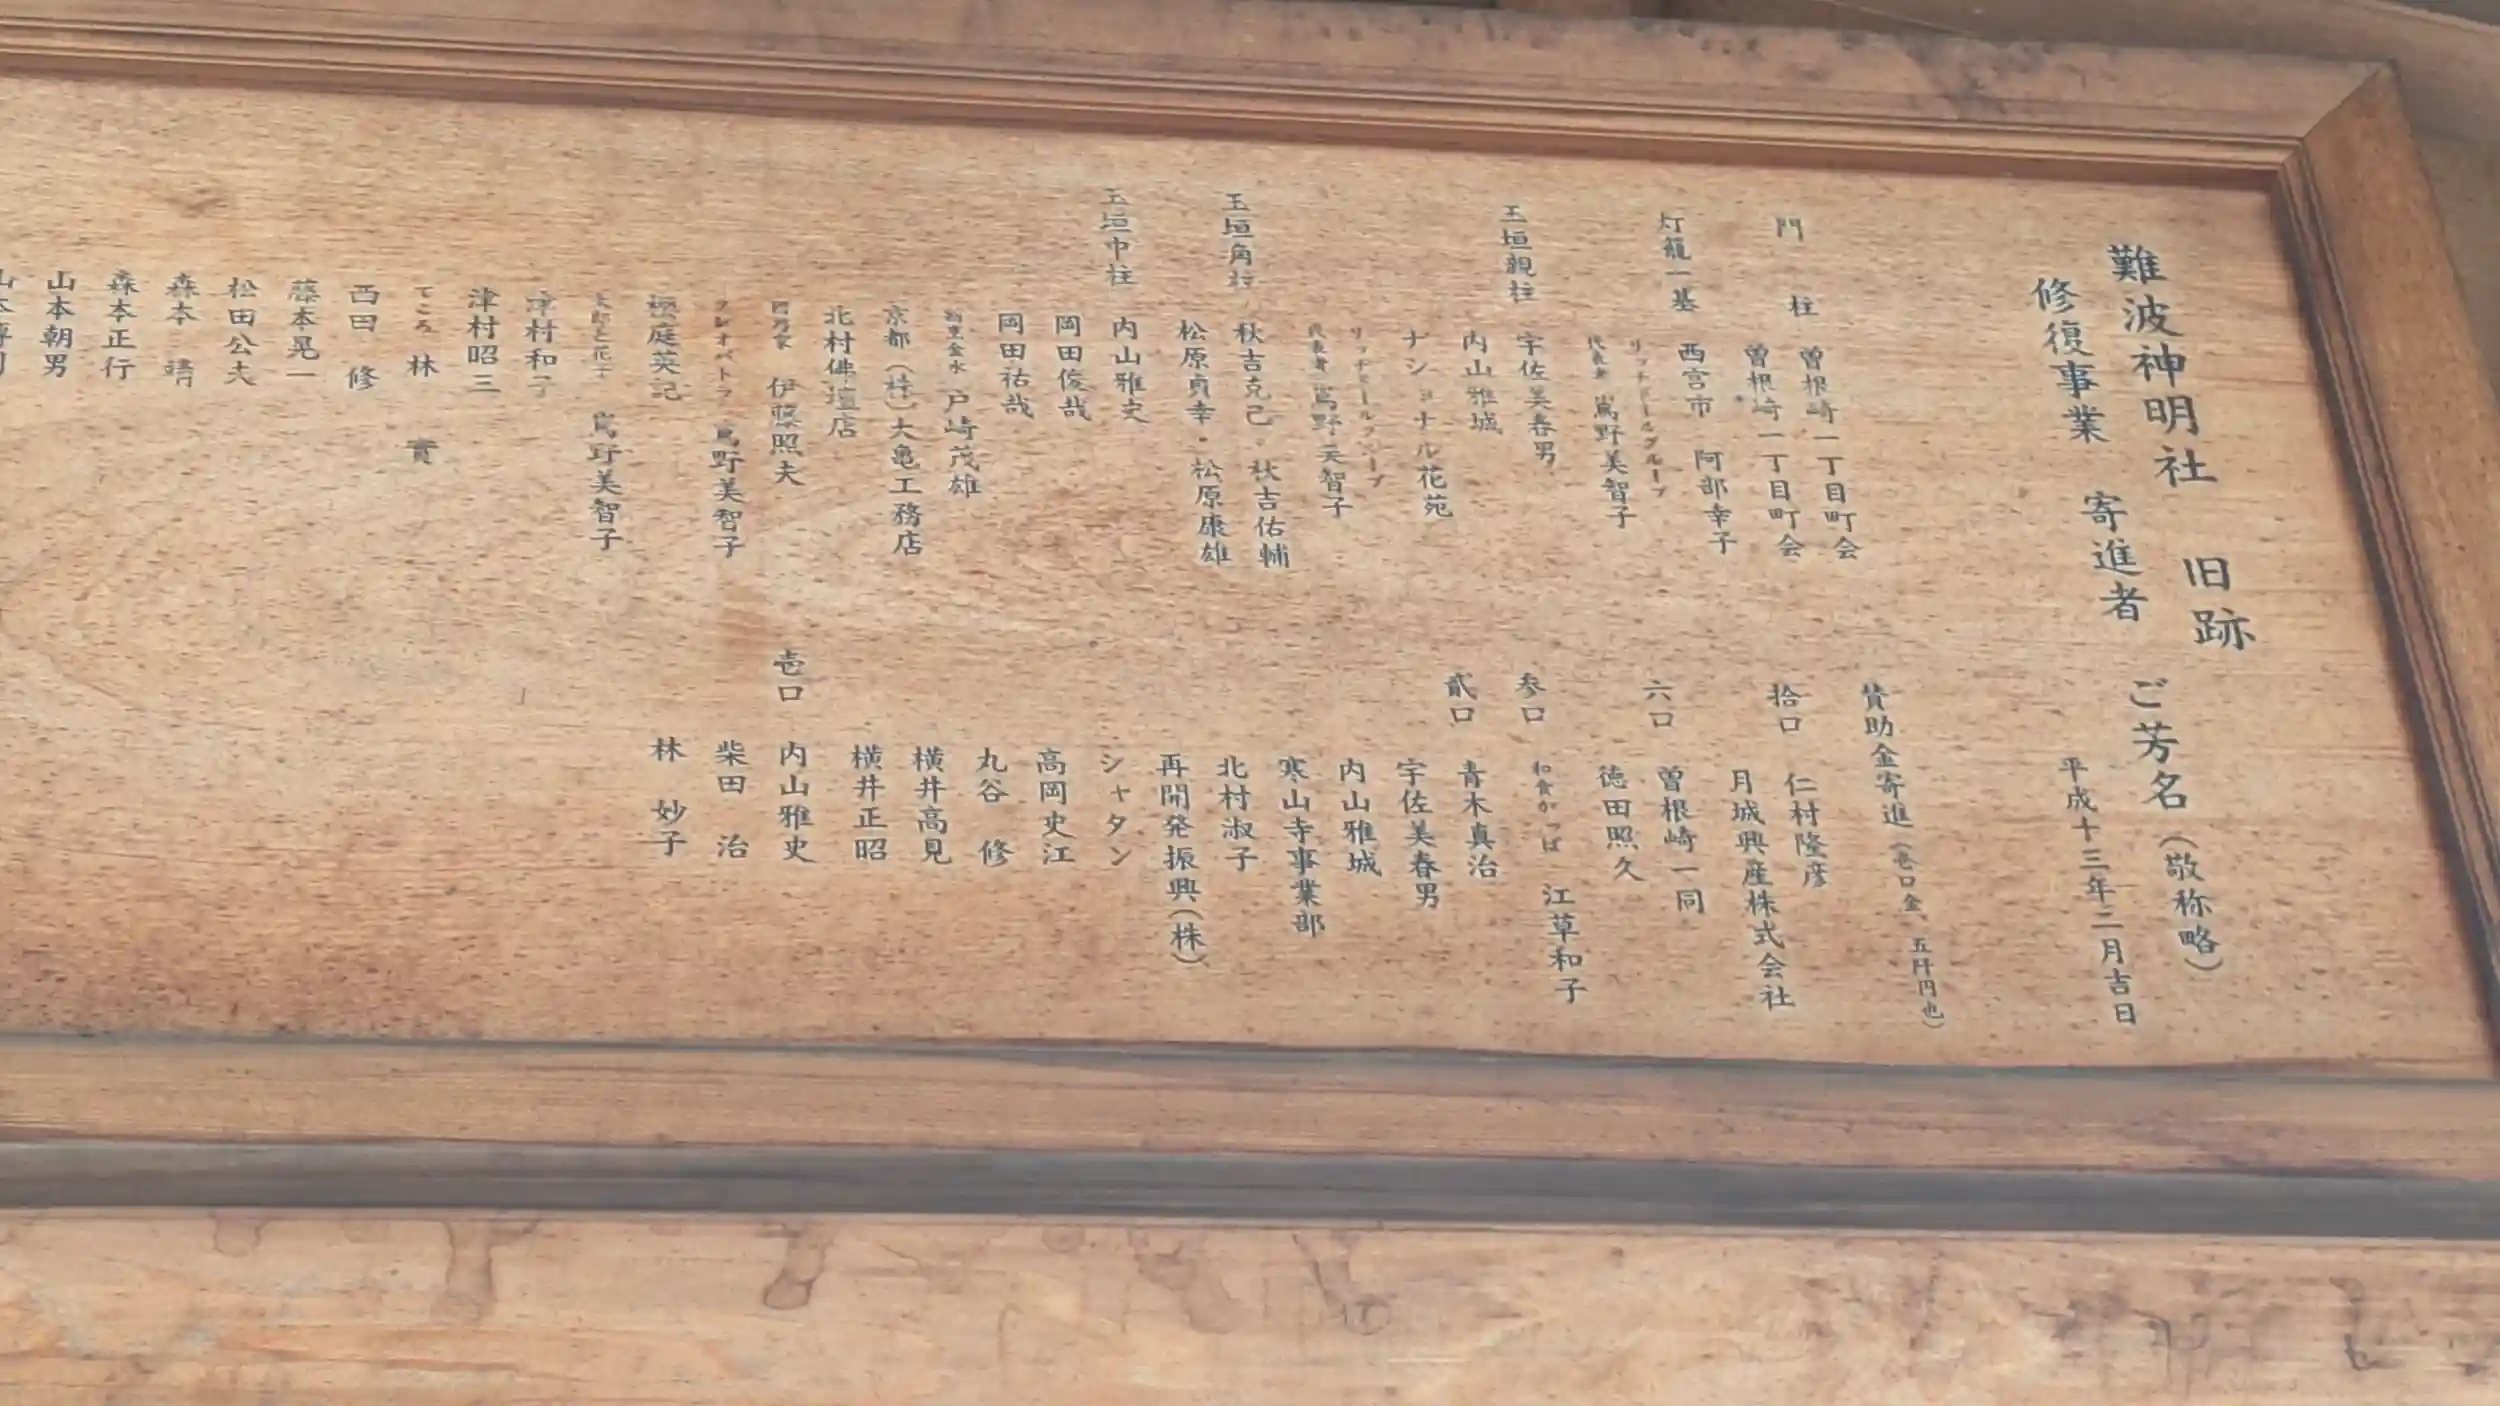 難波神明社 旧跡
修復事業 寄進者 ご芳名（敬称略）
平成十三年二月吉日
門 柱 曽根崎一丁目町会
曽根崎一丁目町会
灯籠一基 西宮市 阿部幸子
リッチドールグループ
代表者 嶌野美智子
玉垣親柱 宇佐美春男
内山雅城
ナショナル花苑
リッチドールグループ
代表者 嶌野美智子
玉垣角柱 秋吉克己・秋吉佑輔
松原貞幸・松原康雄
玉垣中柱 内山雅史
岡田俊哉
岡田祐哉
戸崎茂雄
京都（株）大亀工務店
北村佛壇店
伊藤照夫
クレオパトラ 嶌野美智子
庭英記
太郎と花子 嶌野美智子
津村和子
津村昭三
てころ 林 實
西田 修
藤本晃一
松田公夫
森本 晴
森本正行
山本朝男
賛助金寄進（壱口金、五阡円也）
拾口 仁村隆彦
月城興産株式会社
六口 曽根崎一同
徳田照久
参口 和食かつば 江草和子
貳口 青木真治
宇佐美春男
内山雅城
寒山寺事業部
北村淑子
再開発振興（株）
シャタン
高岡史江
丸谷 修
横井高見
横井正昭
壱口 内山雅史
柴田 治
林 妙子